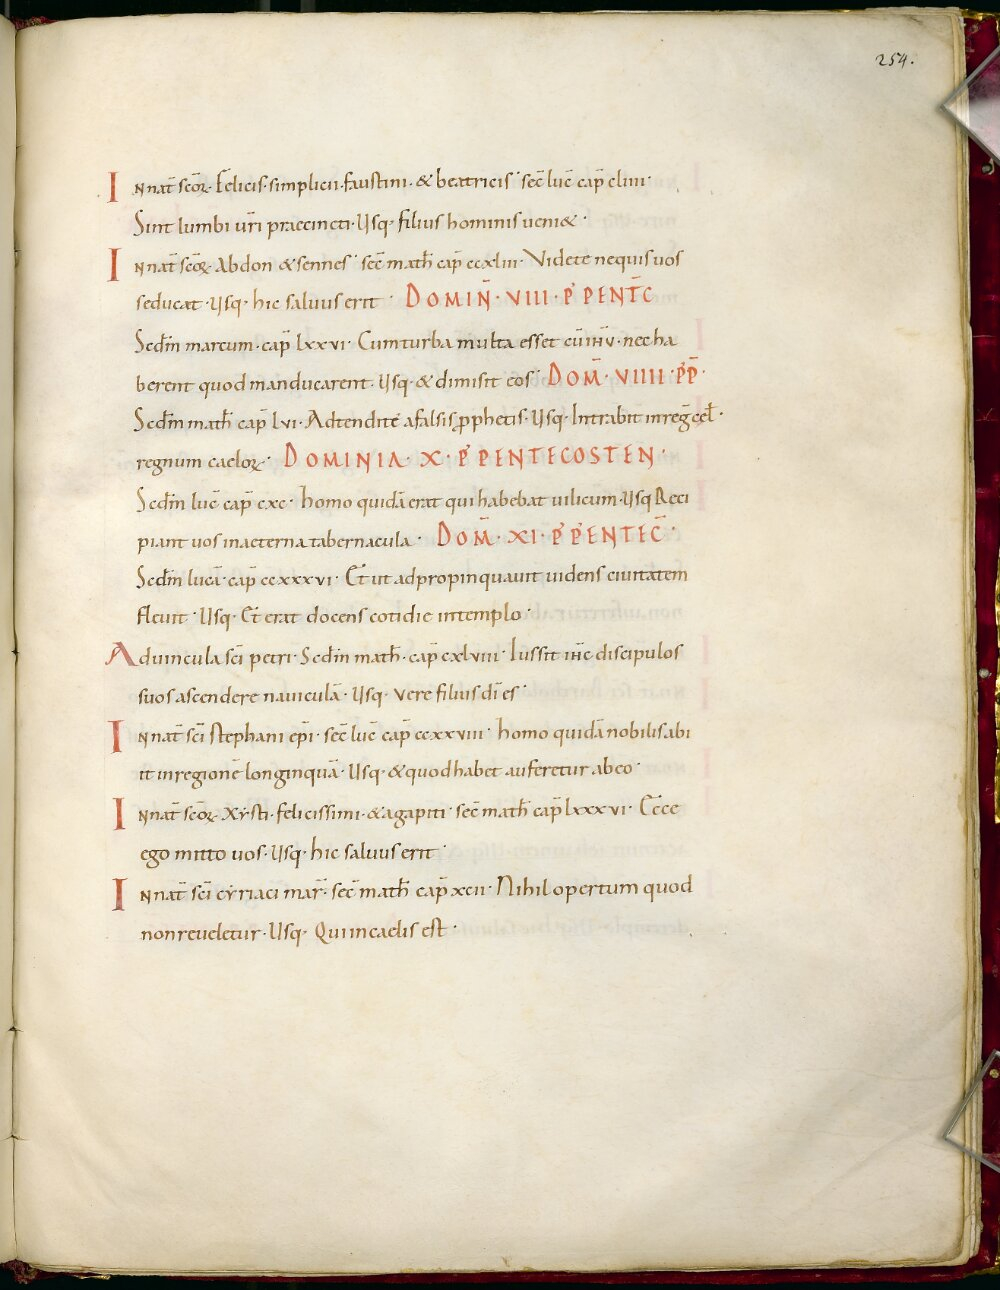 254.
In nat̄ scōꝝ. Felicis. simplicii. faustini. & beatricis. sec̄ luc̄ cap̄ cliiii.
Sint lumbi ur̄i praecincti. Usq. filius hominis ueni&.
In nat̄ scōꝝ. Abdon & sennes. sec̄ math̄ cap̄ ccxliii. Videte nequis uos
seducat. Usq. hic saluus erit. DOMIN̄. VIII. P̄ PENT̄C
Scd̄m marcum. cap̄ lxxvi. Cum turba multa esset cū ih̄u. nec ha
berent quod manducarent. Usq. & dimisit eos. DOM̄. VIIII. P̄P̄.
Scd̄m math̄ cap̄ lvi. Adtendite a falsis ꝓphetis. Usq. Intrabit in reḡ cel̄.
regnum caeloꝝ. DOMINIA. X. P̄ PENTECOSTEN.
Scd̄m luc̄ cap̄ cxc. homo quidā erat qui habebat uilicum. Usq Reci
piant uos in aeterna tabernacula. DOM̄. XI. P̄ PENTEC̄.
Scd̄m lucā. cap̄ ccxxxvi. Et ut adpropinquauit uidens ciuitatem
fleuit. Usq. Et erat docens cotidie in templo.
Ad uincula sc̄i petri. Scd̄m math̄. cap̄ cxlviii. Iussit ih̄c discipulos
suos ascendere nauiculā. Usq. vere filius dī es.
In nat̄ sc̄i stephani ep̄i. sec̄ luc̄ cap̄ ccxxviii. homo quidā nobilis abi
it in regionē longinquā. Usq. & quod habet auferetur ab eo.
In nat̄ scōꝝ xysti. felicissimi. & agapiti. sec̄ math̄ cap̄ lxxxvi. Ecce
ego mitto uos. Usq. hic saluus erit.
In nat̄ sc̄i cyriaci mar̄. sec̄ math̄ cap̄ xcii. Nihil opertum quod
non reueletur. Usq. Qui in caelis est.